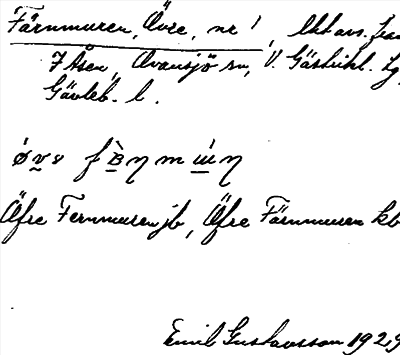 Färnmuren, Övre, nr 1, lht avs. fra
7 Åsen, Ovansjö sn, V. Gästrikl.
Gävleb. l.
Öfre Fernmuren jb, Öfre Färnmuren kb
Emil Gustavsson 1929